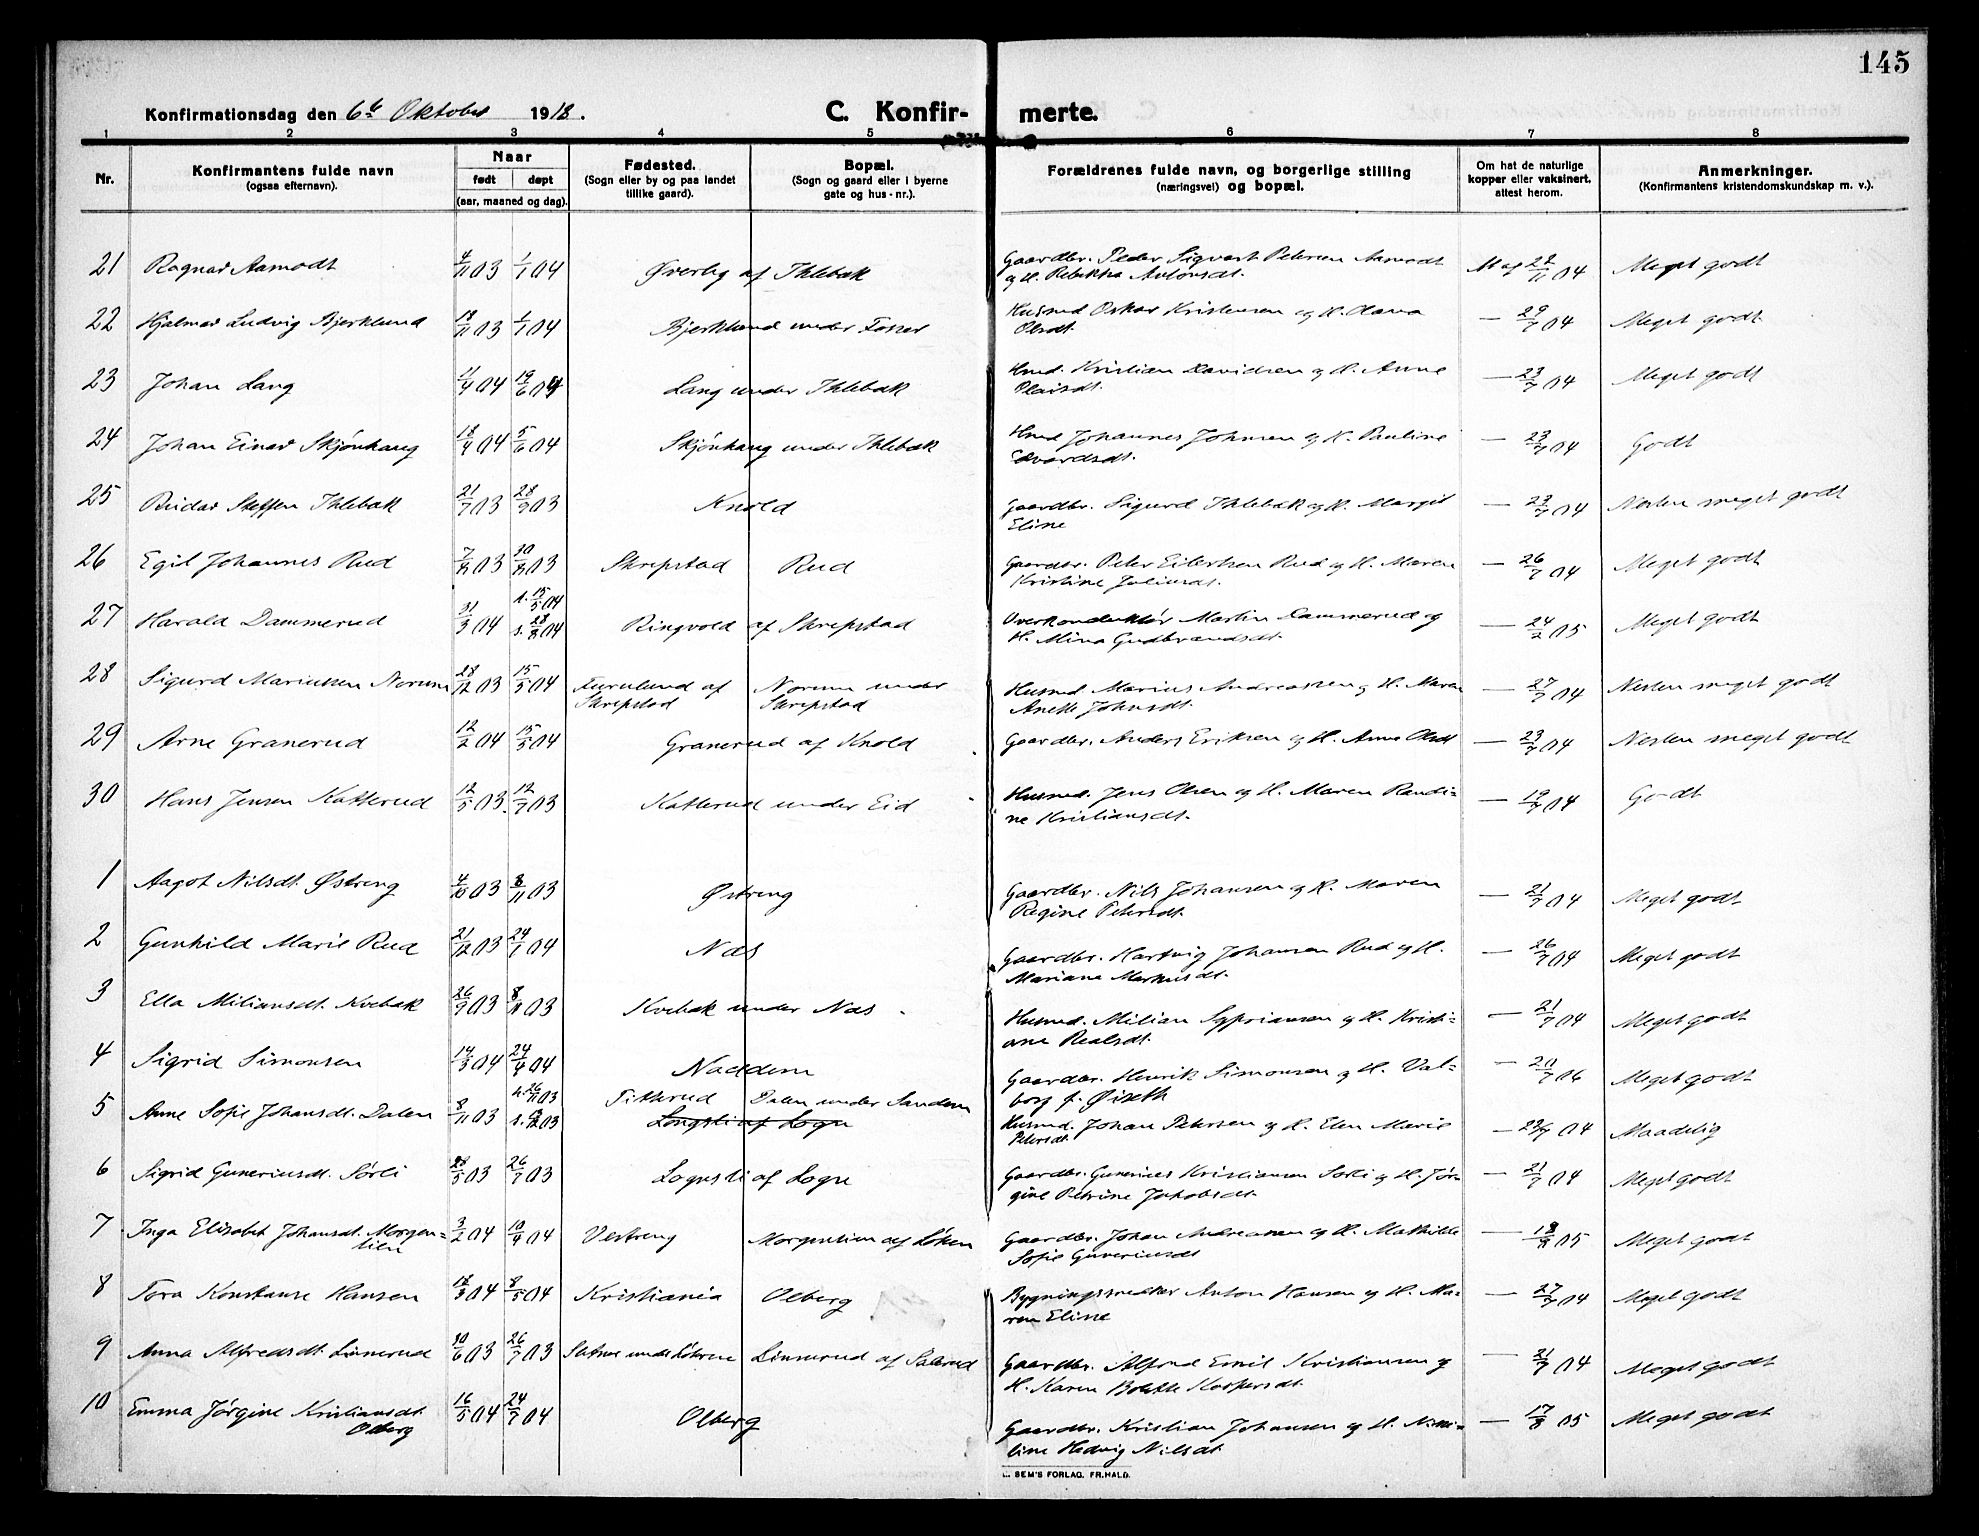 145
Konfirmationsdag den 6te Oktober 1918. C. Konfir- merte.
1 2 3 4 5 6 7 8
Nr. Konfirmantens fulde navn (ogsaa efternavn). Naar født døpt (aar, maaned og dag). Fødested. (Sogn eller by og paa landet tillike gaard). Bopæl. (Sogn og gaard eller i byerne gate og hus-nr.). Forældrenes fulde navn, og borgerlige stilling (næringsvei) og bopæl. Om hat de naturlige kopper eller vaksinert, attest herom. Anmerkninger. (Konfirmantens kristendomskundskap m. v.).
21 Ragnar Aamodt 4/11 03 1/1 04 Øverby af Ihlebæk Gaardbr. Peder Sigvart Petersen Aamodt
og H. Rebekka Antonsdt. 22/11 04 Meget godt
22 Hjalmar Ludvig Bjerklund 18/11 03 1/1 04 Bjerklund under Fosser Husmd Oskar Kristensen og H. Olava
Olsdt. — 29/7 04 Meget godt
23 Johan Lang 11/4 04 19/6 04 Lang under Ihlebæk Hmd. Kristian Davidsen og H. Anne
Olaisdt. — 23/7 04 Meget godt
24 Johan Einar Skjønhaug 18/4 04 5/6 04 Skjønhaug under Ihlebæk Hmd Johannes Johnsen og H. Pauline
Edvardsdt. — 23/7 04 Godt
25 Reidar Steffen Ihlebæk 21/7 03 28/9 03 Knold Gaardbr. Sigurd Ihlebæk og H. Margit
Eline — 23/7 04 Nesten meget godt
26 Egil Johannes Rud 7/12 03 30/12 03 Skrepstad Rud Gaardbr. Peter Eilertsen Rud og H. Maren
Kristine Juliusdt. — 26/7 04 Meget godt
27 Harald Dammerud 31/3 04 h. 15/5 04
s. 28/8 04 Ringvold af Skrepstad Overkonduktør Martin Dammerud og
H. Mina Gudbrandsdt. — 24/2 05 Meget godt
28 Sigurd Mariussen Norum 28/12 03 15/5 04 Furulund af
Skrepstad Norum under
Skrepstad Husmd. Marius Andreassen og H. Maren
Anette Johnsdt. — 27/7 04 Nesten meget godt
29 Arne Granerud 12/2 04 15/5 04 Granerud af Knold Gaardbr. Anders Eriksen og H. Anne Olsdt — 23/7 04 Nesten meget godt
30 Hans Jensen Katterud 12/5 03 12/7 03 Katterud under Eid Husmd. Jens Olsen og H. Maren Randi-
ne Kristiansdt. — 19/7 04 Godt
1 Aagot Nilsdt. Østreng 4/10 03 8/11 03 Østreng Gaardbr. Nils Johansen og H. Maren
Regine Petersdt. — 21/7 04 Meget godt
2 Gunhild Marie Rud 21/12 03 24/1 04 Næs Gaardbr. Hartvig Johansen Rud og H.
Mariane Markusdt. — 26/7 04 Meget godt
3 Ella Miliansdt. Kvebæk 26/9 03 8/11 03 Kvebæk under Næs Husmd. Milian Sypriansen og H. Kristi-
ane Realsdt. — 21/7 04 Meget godt
4 Sigrid Simonsen 14/3 04 24/4 04 Naddum Gaardbr. Henrik Simonsen og H. Val-
borg f. Øiseth — 20/7 06 Meget godt
5 Anne Sofie Johansdt. Dalen 8/11 03 h. 26/11 03
s. 12 03 Fikkerud Dalen under Sandem
Longsli af Logn Husmd. Johan Petersen og H. Elen Marie
Petersdt. — 23/7 04 Maadelig
6 Sigrid Guneriusdt. Sørli 28/5 03 26/7 03 Lognsli af Logn Gaardbr. Gunerius Kristiansen Sørli og H. Jør-
gine Petrine Jakobsdt. — 21/7 04 Meget godt
7 Inga Elisabet Johansdt. Morgen-
lien 3/2 04 10/4 04 Vestreng Morgenlien af Løken Gaardbr. Johan Andreassen og H. Mathilde
Sofie Guneriusdt — 18/8 05 Meget godt
8 Tora Konstanse Hansen 18/3 04 8/5 04 Kristiania Olberg Bygningssnekker Anton Hansen og H. Ma-
ren Eline — 27/7 04 Meget godt
9 Anna Alfredsdt. Linnerud 30/6 03 26/7 03 Linnerud af Salerud Gaardbr. Alfred Emil Kristiansen og
H. Karen Bolette Kaspersdt. — 21/7 04 Meget godt
10 Emma Jørgine Kristiansdt.
Olberg 16/5 04 24/7 04 Olberg Gaardbr. Kristian Johansen og H. Niko-
line Hedvig Nilsdt. — 17/8 05 Meget godt
SEM'S FORLAG. FR.HALD.